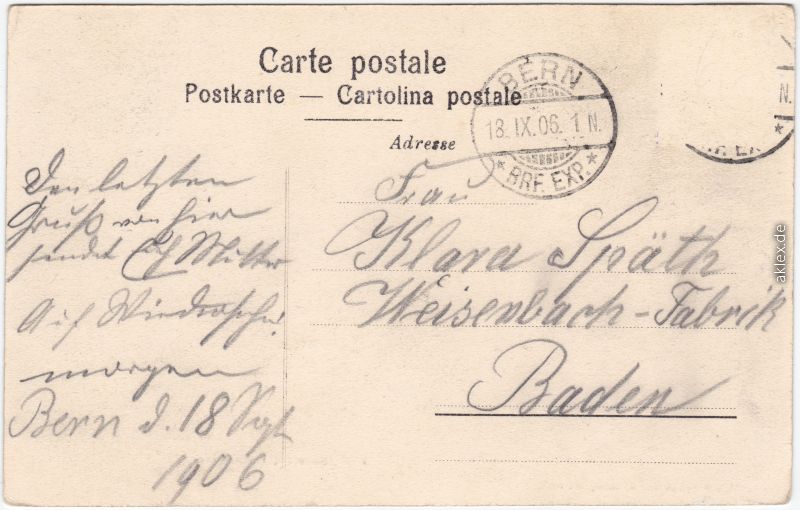 Carte postale
Postkarte — Cartolina postale
Adresse
BERN
18. IX. 06. 1 N.
* BRF. EXP. *
N.
BRF. EXP. *
Den letzten
Gruß von hier
sendet Mutter
Auf Wiedersehn
morgen
Bern d. 18 Sept
1906
Frau
Klara Späth
Weisenbach-Fabrik
Baden
aklex.de